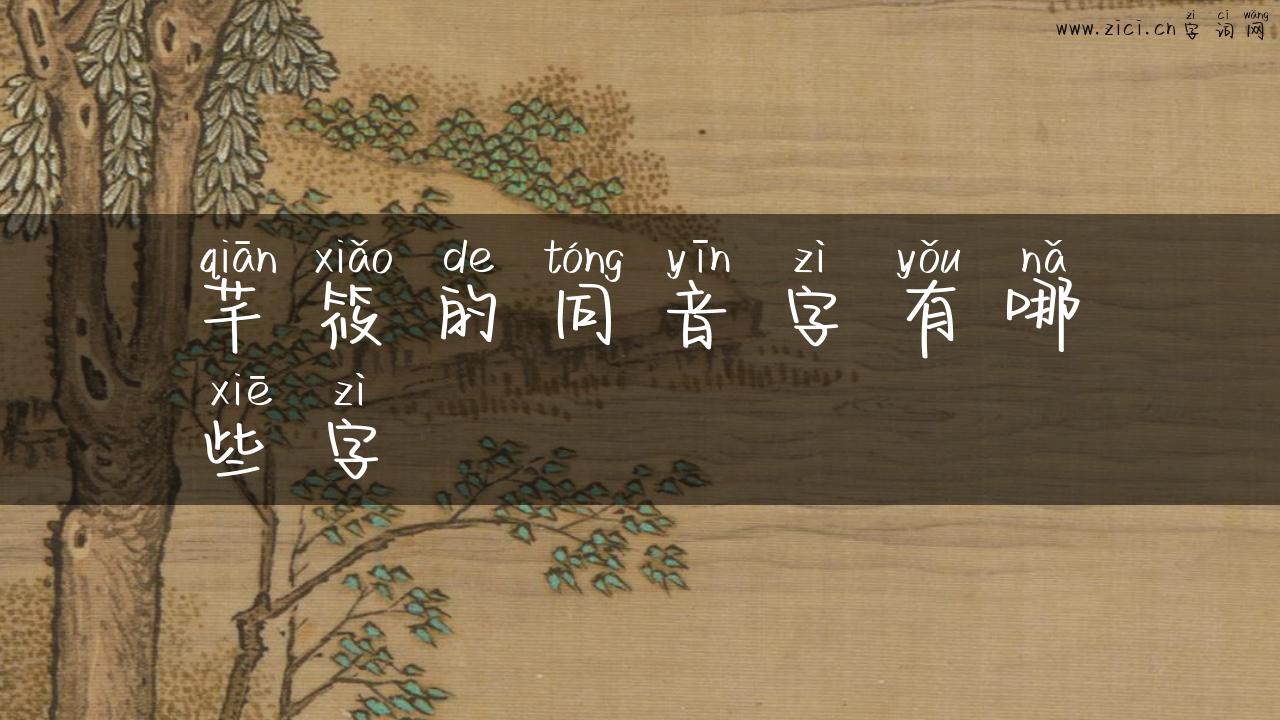 zì cí wǎng
www.zici.cn 字词网
qiān xiǎo de tóng yīn zì yǒu nǎ
芊筱的同音字有哪
xiē zì
些字